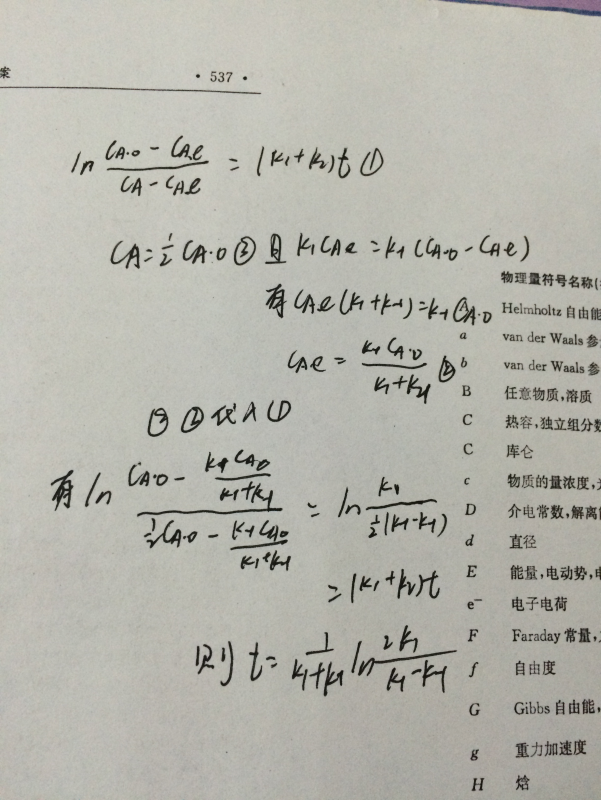 案
· 537 ·
ln (CA·0 − CAe)/(CA − CAe) = (k1+k2)t ①
CA = 1/2 CA·0 ③ 且 k1CAe = k-1(CA·0 − CAe)
有 CAe(k1+k-1) = k-1CA·0
CAe = k-1CA·0/(k1+k-1) ②
③ ② 代入 ①
有 ln (CA·0 − k-1CA0/(k1+k-1))/(1/2CA·0 − k-1CA0/(k1+k-1)) = ln k1/(1/2(k1-k-1))
= (k1+k2)t
则 t = 1/(k1+k-1) ln 2k1/(k1−k-1)
物理量符号名称(
Helmholtz 自由能
a van der Waals 参
b van der Waals 参
B 任意物质,溶质
C 热容,独立组分数
C 库仑
c 物质的量浓度,
D 介电常数,解离
d 直径
E 能量,电动势,
e⁻ 电子电荷
F Faraday 常量,
f 自由度
G Gibbs 自由能,
g 重力加速度
H 焓